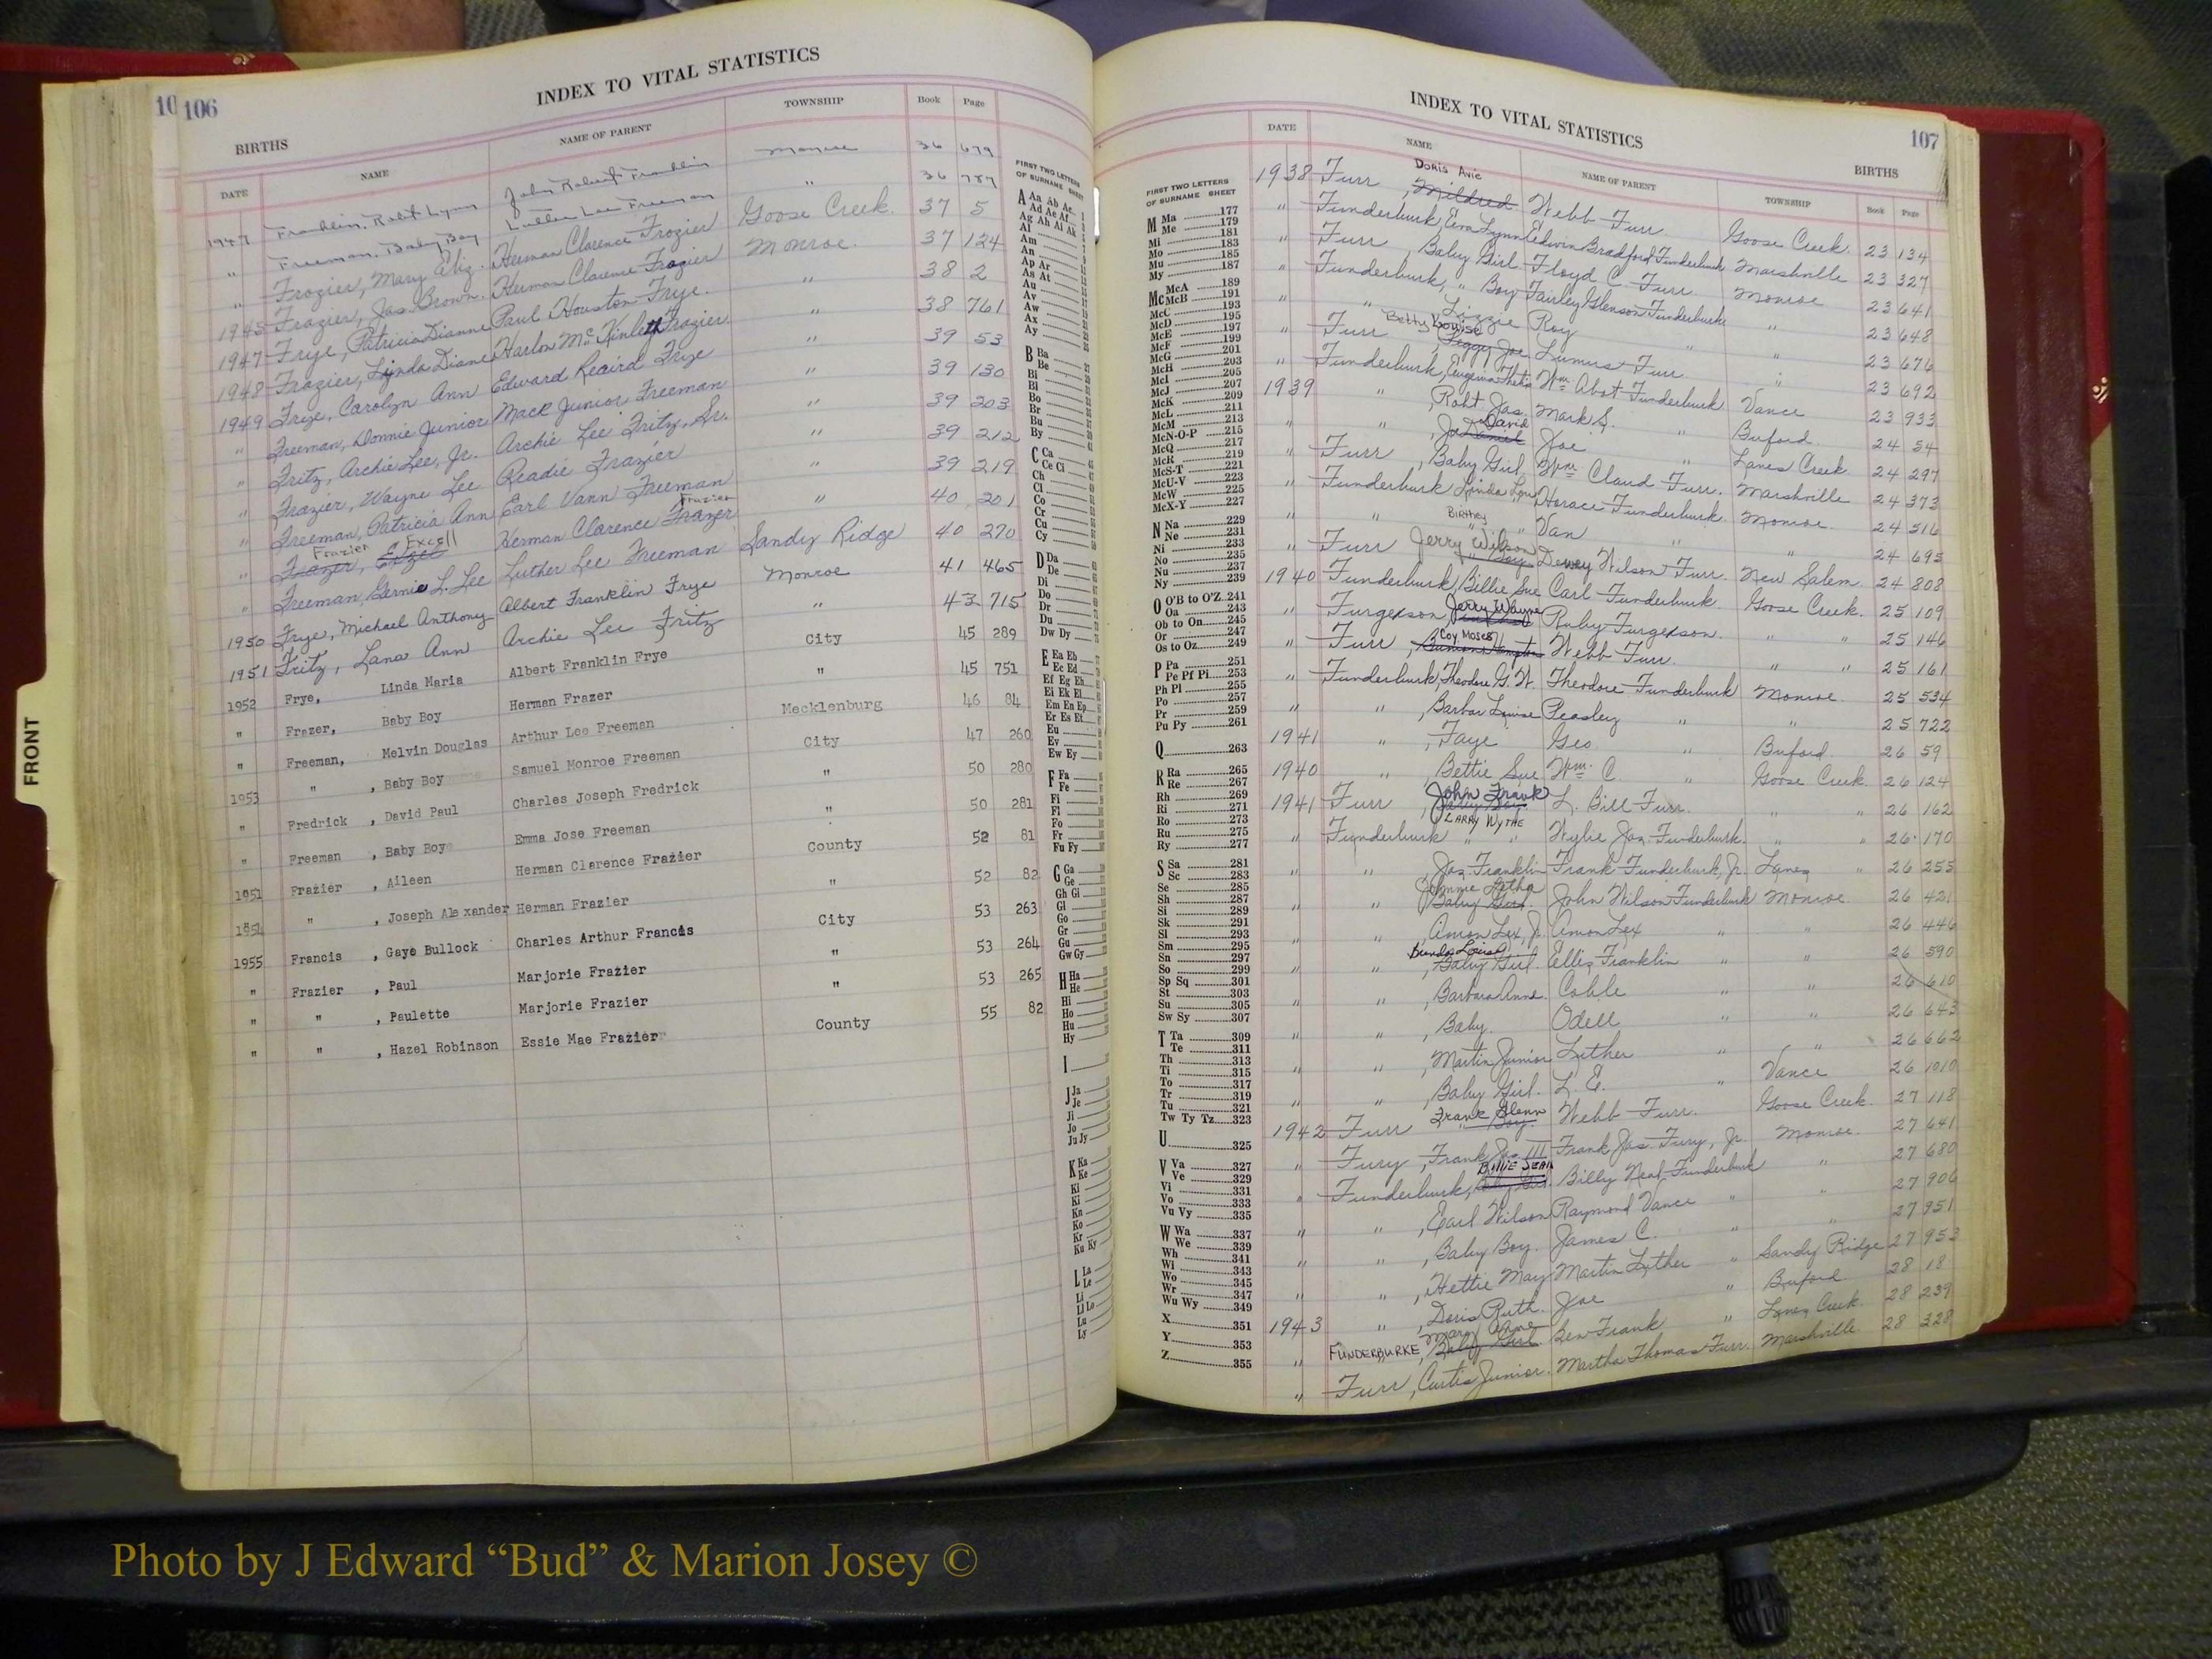 10 106
INDEX TO VITAL STATISTICS
BIRTHS
DATE NAME NAME OF PARENT TOWNSHIP Book Page
1947 Franklin, Robt Lynn John Robert Franklin Monroe 36 679
" Freeman, Baby Boy Luther Lee Freeman " 36 787
" Frozier, Mary Eliz. Herman Clarence Frozier Goose Creek. 37 5
1945 Frazier, Jas. Brown. Herman Clarence Frazier Monroe. 37 124
1947 Frye, Patricia Dianne Paul Houston Frye. " 38 2
1948 Frazier, Lynda Diane Harlon Mc Kinley Frazier " 38 761
1949 Frye, Carolyn Ann Edward Reaird Frye " 39 53
" Freeman, Donnie Junior Mack Junior Freeman " 39 130
" Fritz, Archie Lee, Jr. Archie Lee Fritz, Sr. " 39 203
" Frazier, Wayne Lee Readie Frazier " 39 212
" Freeman, Patricia Ann Earl Vann Freeman " 39 219
Frazier Excell Frazier
" Frazer, Herman Clarence Frazer " 40 201
" Freeman, L. Lee Luther Lee Freeman Sandy Ridge 40 270
1950 Frye, Michael Anthony Albert Franklin Frye Monroe 41 465
1951 Fritz, Lana Ann Archie Lee Fritz " 43 715
1952 Frye, Linda Maria Albert Franklin Frye City 45 289
" Frazer, Baby Boy Herman Frazer " 45 751
" Freeman, Melvin Douglas Arthur Lee Freeman Mecklenburg 46 84
1953 " , Baby Boy Samuel Monroe Freeman City 47 260
" Fredrick , David Paul Charles Joseph Fredrick " 50 280
" Freeman , Baby Boy Emma Jose Freeman " 50 281
1951 Frazier , Aileen Herman Clarence Frazier County 52 81
" , Joseph Alexander Herman Frazier " 52 82
1955 Francis , Gaye Bullock Charles Arthur Francis City 53 263
" Frazier , Paul Marjorie Frazier " 53 264
" " , Paulette Marjorie Frazier " 53 265
" " , Hazel Robinson Essie Mae Frazier County 55 82
FIRST TWO LETTERS
OF SURNAME SHEET
A Aa Ab Ac
Ad Ae Af
Ag Ah Ai Ak
Al
Am
An
Ap Ar
As At
Au
Av
Aw
Ax
Ay
B Ba
Be
Bi
Bl
Bo
Br
Bu
By
C Ca
Ce Ci
Ch
Cl
Co
Cr
Cu
Cy
D Da
De
Di
Do
Dr
Du
Dw Dy
E Ea Eb
Ec Ed
Ef Eg Eh
Ei Ek El
Em En Ep
Er Es Et
Eu
Ev
Ew Ey
F Fa
Fe
Fi
Fl
Fo
Fr
Fu Fy
G Ga
Ge
Gh Gi
Gl
Go
Gr
Gu
Gw Gy
H Ha
He
Hi
Ho
Hu
Hy
I
J Ja
Je
Ji
Jo
Ju Jy
K Ka
Ke
Ki
Kl
Kn
Ko
Kr
Ku Ky
L La
Le
Li
Ll Lo
Lu
Ly
FRONT
INDEX TO VITAL STATISTICS 107
BIRTHS
DATE NAME NAME OF PARENT TOWNSHIP Book Page
FIRST TWO LETTERS
OF SURNAME SHEET
M Ma 177
Me 179
Mi 181
Mo 183
Mu 185
My 187
Mc McA 189
McB 191
McC 193
McD 195
McE 197
McF 199
McG 201
McH 203
McI 205
McJ 207
McK 209
McL 211
McM 213
McN-O-P 215
McQ 217
McR 219
McS-T 221
McU-V 223
McW 225
McX-Y 227
N Na 229
Ne 231
Ni 233
No 235
Nu 237
Ny 239
O O'B to O'Z 241
Oa 243
Ob to On 245
Or 247
Os to Oz 249
P Pa 251
Pe Pf Pi 253
Ph Pl 255
Po 257
Pr 259
Pu Py 261
Q 263
R Ra 265
Re 267
Rh 269
Ri 271
Ro 273
Ru 275
Ry 277
S Sa 281
Sc 283
Se 285
Sh 287
Si 289
Sk 291
Sl 293
Sm 295
Sn 297
So 299
Sp Sq 301
St 303
Su 305
Sw Sy 307
T Ta 309
Te 311
Th 313
Ti 315
To 317
Tr 319
Tu 321
Tw Ty Tz 323
U 325
V Va 327
Ve 329
Vi 331
Vo 333
Vu Vy 335
W Wa 337
We 339
Wh 341
Wi 343
Wo 345
Wr 347
Wu Wy 349
X 351
Y 353
Z 355
Doris Avie
1938 Furr , Mildred Webb Furr Goose Creek. 23 134
" Funderburk, Eva Lynn Edwin Bradford Funderburk Marshville 23 327
" Furr , Baby Girl Floyd C. Furr Monroe 23 641
" Funderburk, " Boy Fairley Glenson Funderburk " 23 648
" " Lizzie Roy " " 23 676
Betty Louise
" Furr , Peggy Joe Lumirst Furr " 23 692
" Funderburk, Wm Abot Funderburk Vance 23 933
1939 " , Robt Jas. Mark S. " Buford 24 54
David
" " , Joe " Lanes Creek 24 297
" Furr , Baby Girl Wm Claud Furr. Marshville 24 373
" Funderburk Linda Lou Horace Funderburk Monroe 24 516
" " Birthey Van " " 24 695
" Furr Jerry Wilson Dewey Wilson Furr. New Salem 24 808
1940 Funderburk, Billie Sue Carl Funderburk Goose Creek. 25 109
" Furgerson, Jerry Wayne Ruby Furgerson. " " 25 146
Coy Moses
" Furr , Webb Furr. " " 25 161
" Funderburk, Theodore G. W. Theodore Funderburk Monroe 25 534
" " , Barbar Louise Peasley " " 25 722
1941 " , Faye Geo " Buford 26 59
1940 " , Bettie Sue Wm. C. " Goose Creek. 26 124
1941 Furr , John Frank L. Bill Furr. " " 26 162
LARRY WYTHE
" Funderburk " " Wylie Jas. Funderburk " " 26 170
" " Jas. Franklin Frank Funderburk, Jr. Lanes " 26 255
Jimmie Letha
" " , Baby Girl. John Wilson Funderburk Monroe 26 421
" " , Amon Lex, Jr. Amon Lex " " 26 446
Brenda Louise
" " , Baby Girl. Ellis Franklin " " 26 590
" " , Barbara Anne. Coble " " 26 610
" " , Baby. Odell " " 26 643
" " , Martin Junior Luther " " 26 662
" " , Baby Girl. L. E. " Vance 26 1010
Frank Glenn
1942 Furr " Boy. Webb Furr. Goose Creek. 27 118
" Fury , Frank Jas. III Frank Jas. Fury, Jr. Monroe 27 641
BILLIE JEAN
" Funderburk, Billy Neal Funderburk " 27 680
" " , Earl Wilson Raymond Vance " " 27 906
" " , Baby Boy. James C. " " 27 951
" " , Hettie May Martin Luther " Sandy Ridge 27 953
" " , Doris Ruth. Joe " Buford 28 18
1943 FUNDERBURKE Mary Anne , Baby Girl. Ben Frank " Lanes Creek. 28 239
" Furr , Curtis Junior. Martha Thomas Furr. Marshville. 28 328
Photo by J Edward “Bud” & Marion Josey ©